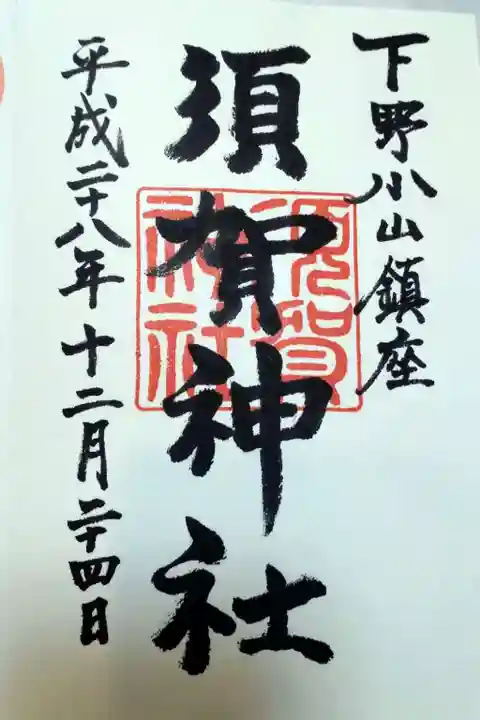 下野小山鎮座
須賀神社
平成二十八年十二月二十四日
須賀
神社